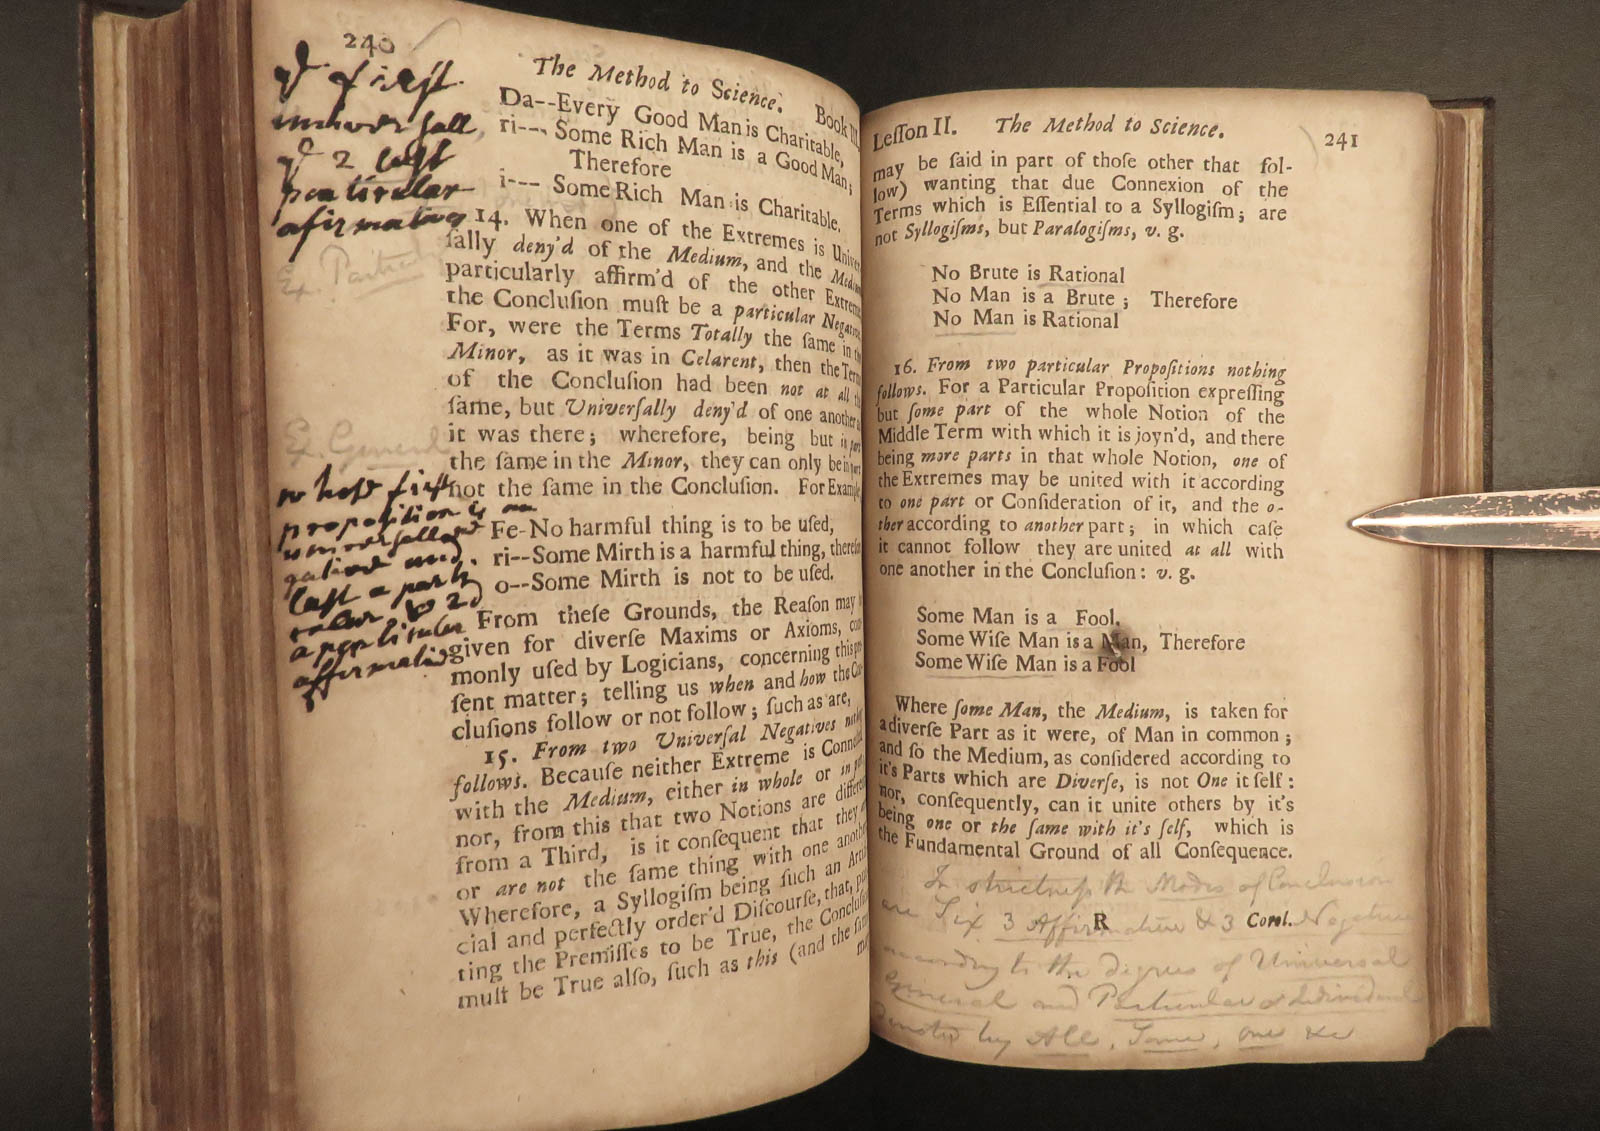 240
The Method to Science. Book III.
Da--Every Good Man is Charitable,
ri--- Some Rich Man is a Good Man;
Therefore
i--- Some Rich Man is Charitable.
14. When one of the Extremes is Univer
ſally deny'd of the Medium, and the Medium
particularly affirm'd of the other Extreme
the Concluſion muſt be a particular Negative.
For, were the Terms Totally the ſame in the
Minor, as it was in Celarent, then the Term
of the Concluſion had been not at all the
ſame, but Univerſally deny'd of one another as
it was there; wherefore, being but in part
the ſame in the Minor, they can only be in part
not the ſame in the Concluſion. For Example
Fe-No harmful thing is to be uſed,
ri--Some Mirth is a harmful thing, therefore
o--Some Mirth is not to be uſed.
From theſe Grounds, the Reaſon may
given for diverſe Maxims or Axioms, com
monly uſed by Logicians, concerning this pre
ſent matter; telling us when and how the Con
cluſions follow or not follow; ſuch as are,
15. From two Univerſal Negatives nothing
follows. Becauſe neither Extreme is Connected
with the Medium, either in whole or in part
nor, from this that two Notions are different
from a Third, is it conſequent that they are
or are not the ſame thing with one another
Wherefore, a Syllogiſm being ſuch an Artifi
cial and perfectly order'd Diſcourſe, that, put
ting the Premiſſes to be True, the Concluſion
muſt be True alſo, ſuch as this (and the ſame
may
ye first
universall,
ye 2 last
particular
afirmative
Ex. Particul
Ex. General
whose first
proposition is an
universall ne
gative and
last a parti
culer 2d
a particuler
affirmative
Leſſon II. The Method to Science. 241
may be ſaid in part of thoſe other that fol-
low) wanting that due Connexion of the
Terms which is Eſſential to a Syllogiſm; are
not Syllogiſms, but Paralogiſms, v. g.
No Brute is Rational
No Man is a Brute; Therefore
No Man is Rational
16. From two particular Propoſitions nothing
follows. For a Particular Propoſition expreſſing
but ſome part of the whole Notion of the
Middle Term with which it is joyn'd, and there
being more parts in that whole Notion, one of
the Extremes may be united with it according
to one part or Conſideration of it, and the o-
ther according to another part; in which caſe
it cannot follow they are united at all with
one another in the Concluſion: v. g.
Some Man is a Fool.
Some Wiſe Man is a Man, Therefore
Some Wiſe Man is a Fool
Where ſome Man, the Medium, is taken for
a diverſe Part as it were, of Man in common;
and ſo the Medium, as conſidered according to
it's Parts which are Diverſe, is not One it ſelf:
nor, conſequently, can it unite others by it's
being one or the ſame with it's ſelf, which is
the Fundamental Ground of all Conſequence.
R Corol.
In strictness the Modes of Conclusion
are Six 3 Affirmative & 3 Negative
according to the degrees of Universal
General and Particular or Individual
Denoted by All, Some, one &c